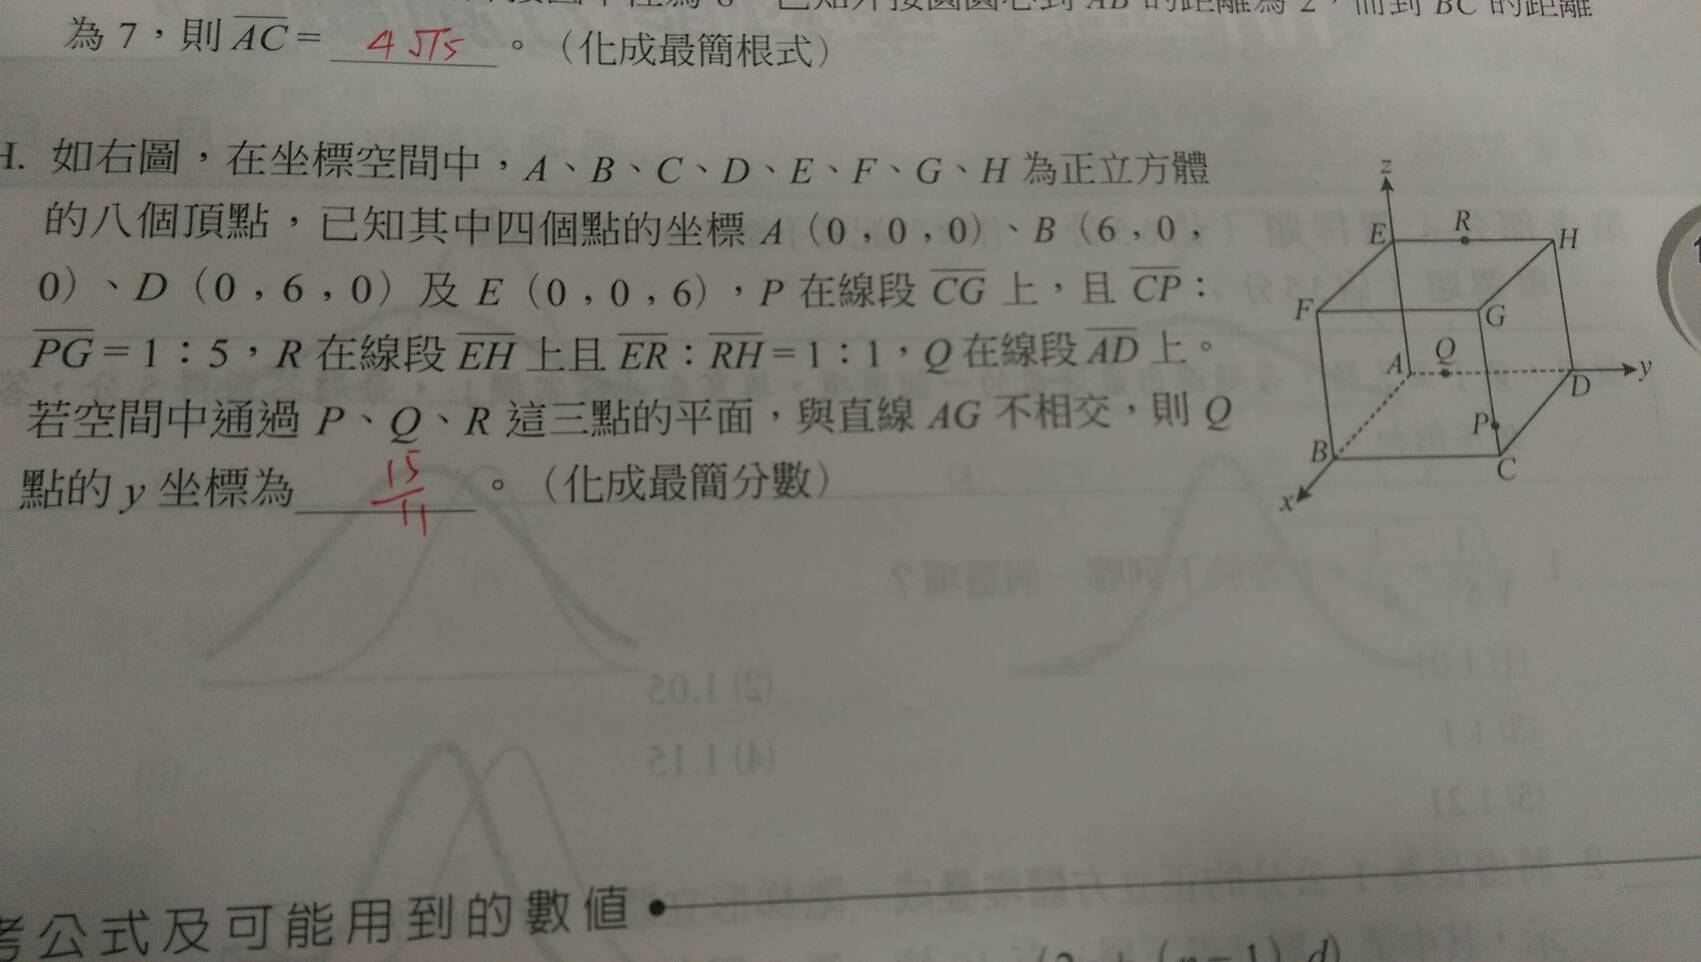 AB 的距離為 2，而到 BC 的距離
為 7，則 AC = 4√15 。（化成最簡根式）
H. 如右圖，在坐標空間中，A、B、C、D、E、F、G、H 為正立方體
的八個頂點，已知其中四個點的坐標 A（0，0，0）、B（6，0，
0）、D（0，6，0）及 E（0，0，6），P 在線段 CG 上，且 CP：
PG = 1：5，R 在線段 EH 上且 ER：RH = 1：1，Q 在線段 AD 上。
若空間中通過 P、Q、R 這三點的平面，與直線 AG 不相交，則 Q
點的 y 坐標為 15/11 。（化成最簡分數）
z
E R H
F G
A Q D y
P
B C
x
考公式及可能用到的數值